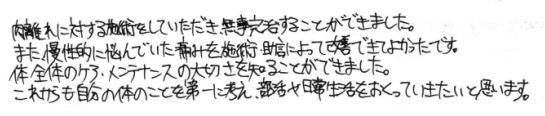 肉離れに対する施術をしていただき無事完治することができました。
また、慢性的に悩んでいた痛みを施術・助言によって改善できてよかったです。
体全体のケア・メンテナンスの大切さを知ることができました。
これからも自分の体のことを第一に考え、部活や日常生活をおくっていきたいと思います。